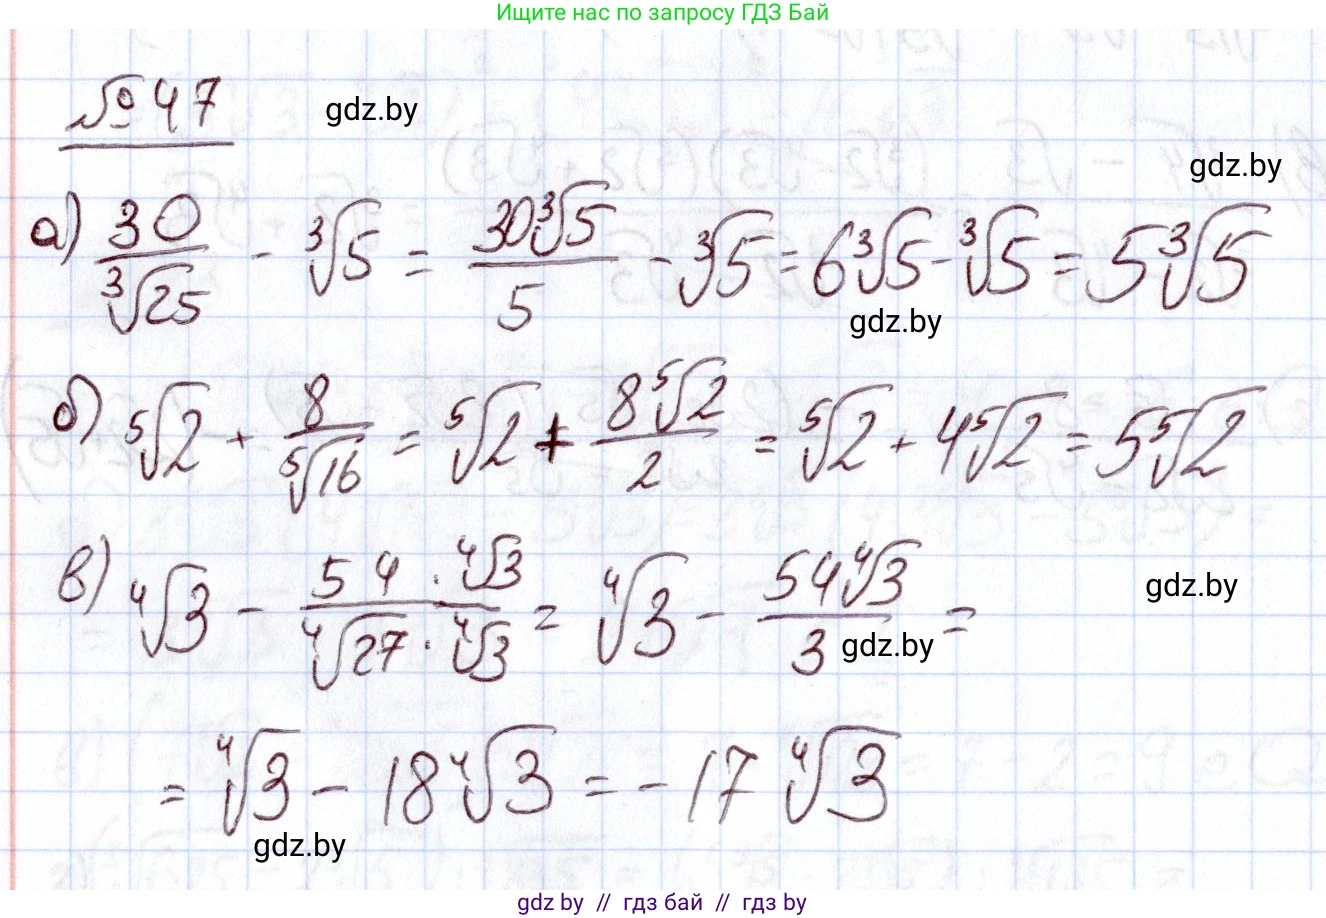 Ищите нас по запросу ГДЗ Бай
№47
gdz.by
gdz.by
а) 30/∛25 - ∛5 = 30∛5/5 - ∛5 = 6∛5 - ∛5 = 5∛5
gdz.by
б) ⁵√2 + 8/⁵√16 = ⁵√2 + 8⁵√2/2 = ⁵√2 + 4⁵√2 = 5⁵√2
в) ⁴√3 - 54·⁴√3/⁴√27·⁴√3 = ⁴√3 - 54⁴√3/3 =
gdz.by
gdz.by
= ⁴√3 - 18⁴√3 = -17⁴√3
gdz.by
gdz by // гдз бай // гдз by